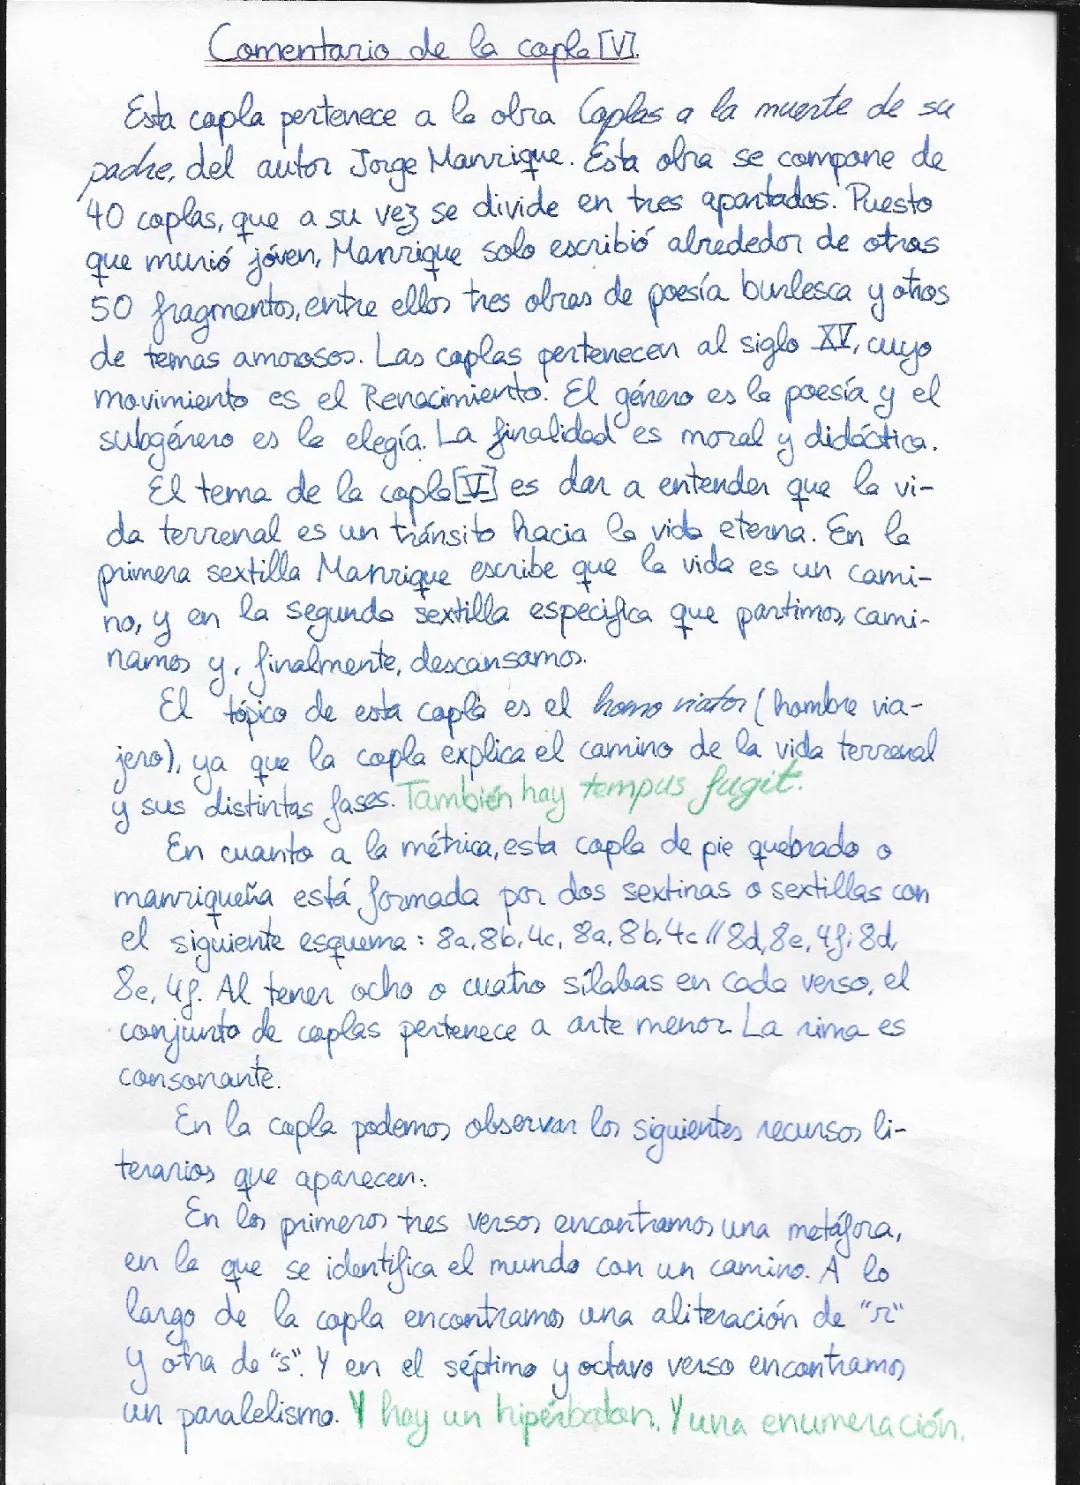 Comentario de la copla [V].
Esta copla pertenece a la obra Coplas a la muerte de su
padre, del autor Jorge Manrique. Esta obra se compone de
40 coplas, que a su vez se divide en tres apartados. Puesto
que murió jóven, Manrique solo escribió alrededor de otros
50 fragmentos, entre ellos tres obras de poesía burlesca y otros
de temas amorosos. Las coplas pertenecen al siglo XV, cuyo
movimiento es el Renacimiento. El género es la poesía y el
subgénero es la elegía. La finalidad es moral y didáctica.
El tema de la copla [V] es dar a entender que la vi-
da terrenal es un tránsito hacia la vida eterna. En la
primera sextilla Manrique escribe que la vida es un cami-
no, y en la segunda sextilla especifica que partimos, cami-
namos y, finalmente, descansamos.
El tópico de esta copla es el homo viator (hombre via-
jero), ya que la copla explica el camino de la vida terrenal
y sus distintas fases. También hay tempus fugit.
En cuanto a la métrica, esta copla de pie quebrado o
manriqueña está formada por dos sextinas o sextillas con
el siguiente esquema: 8a, 8b, 4c, 8a, 8b, 4c // 8d, 8e, 4f; 8d,
8e, 4f. Al tener ocho o cuatro sílabas en cada verso, el
conjunto de coplas pertenece a arte menor. La rima es
consonante.
En la copla podemos observar los siguientes recursos li-
terarios que aparecen:
En los primeros tres versos encontramos una metáfora,
en la que se identifica el mundo con un camino. A lo
largo de la copla encontramos una aliteración de "r"
y otra de "s". Y en el séptimo y octavo verso encontramos
un paralelismo. Y hay un hipérbaton. Y una enumeración.